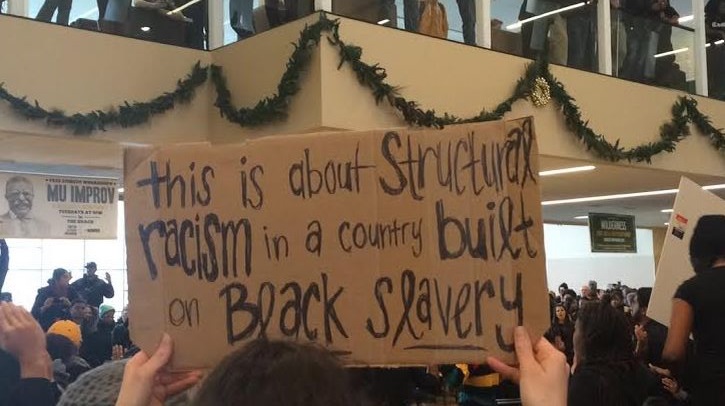 MU IMPROV
TUESDAYS AT 9PM
this is about Structural
racism in a country built
on Black Slavery
WILDERNESS